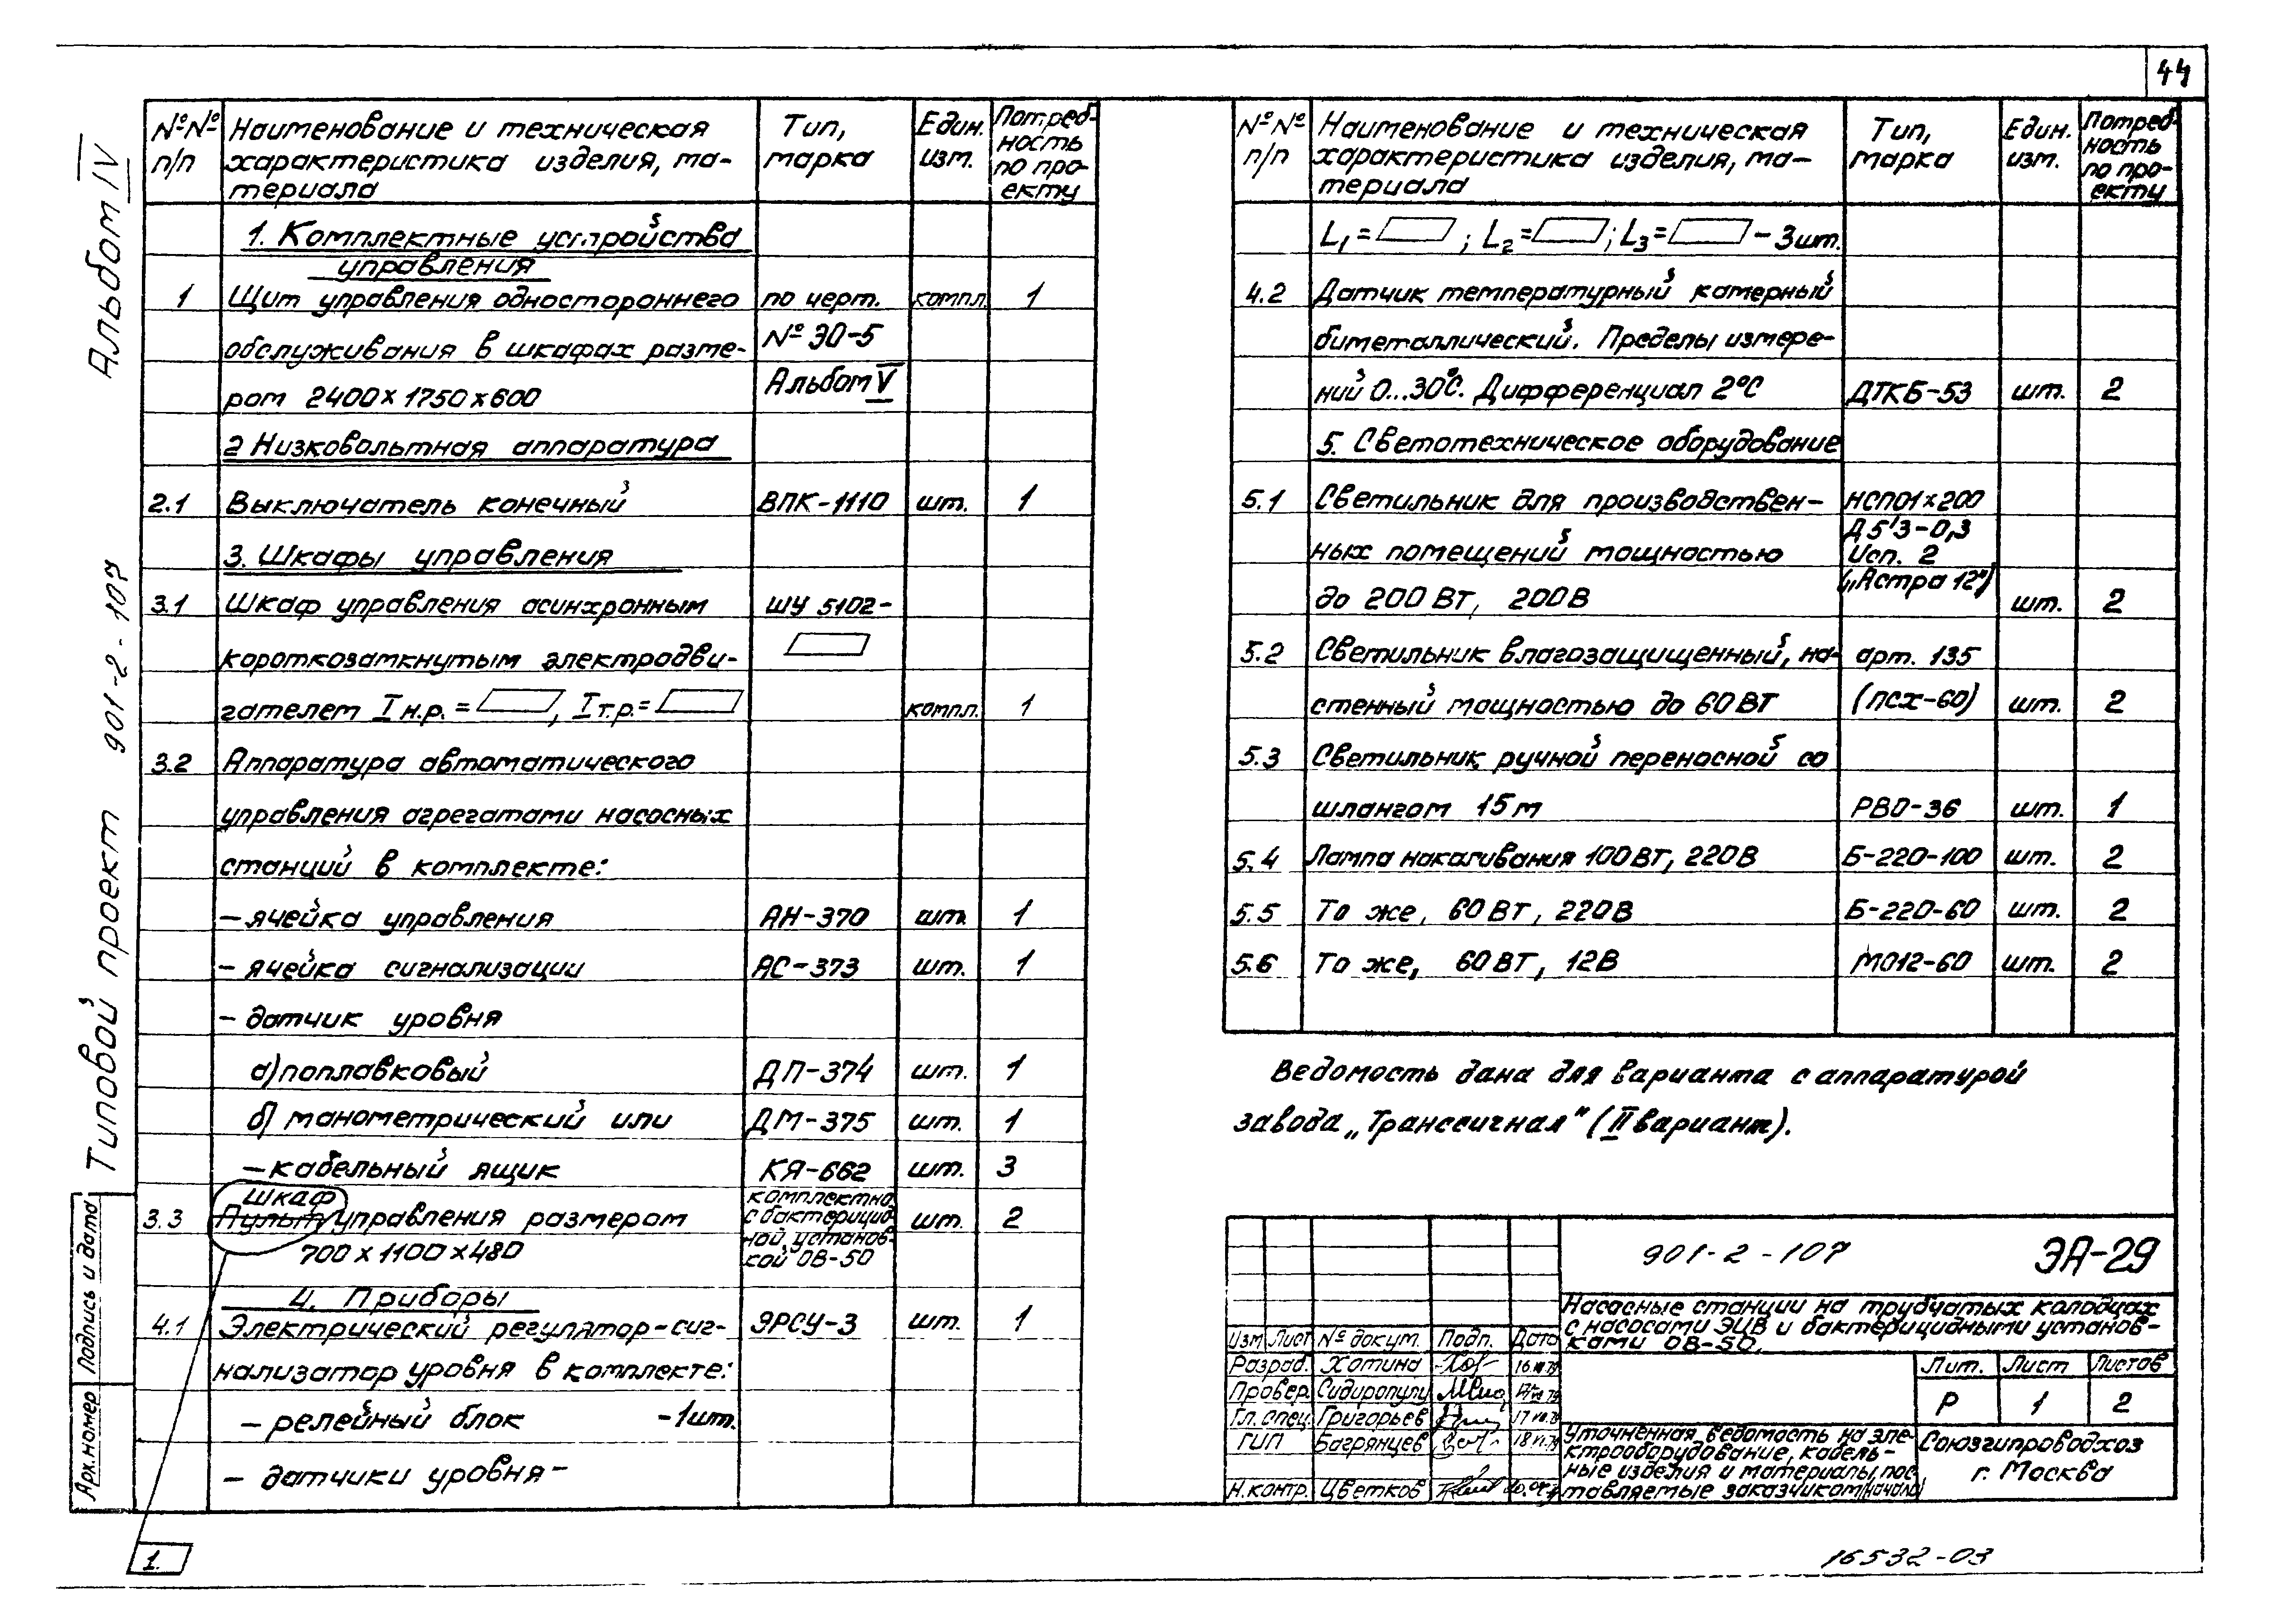 44
Альбом IV
Типовой проект 901-2-107
Подпись и дата
Арх.номер
№№ п/п
Наименование и техническая
характеристика изделия, ма-
териала
Тип,
марка
Един.
изм.
Потреб-
ность
по про-
екту
1. Комплектные устройства
управления
1 Щит управления одностороннего по черт. компл. 1
обслуживания в шкафах разме- № ЭО-5
ром 2400х1750х600 Альбом V
2 Низковольтная аппаратура
2.1 Выключатель конечный ВПК-1110 шт. 1
3. Шкафы управления
3.1 Шкаф управления асинхронным ШУ 5102-
короткозамкнутым электродви-
гателем Iн.р.= , Iт.р.= компл. 1
3.2 Аппаратура автоматического
управления агрегатами насосных
станций в комплекте:
- ячейка управления АН-370 шт. 1
- ячейка сигнализации АС-373 шт. 1
- датчик уровня
а) поплавковый ДП-374 шт. 1
б) манометрический или ДМ-375 шт. 1
- кабельный ящик КЯ-662 шт. 3
шкаф
3.3 Пульт управления размером шт. 2
700х1100х480
комплектно
с бактерицид-
ной установ-
кой ОВ-50
4. Приборы
4.1 Электрический регулятор-сиг- ЭРСУ-3 шт. 1
нализатор уровня в комплекте:
- релейный блок -1шт.
- датчики уровня-
1.
№№ п/п
Наименование и техническая
характеристика изделия, ма-
териала
Тип,
марка
Един.
изм.
Потреб-
ность
по про-
екту
L1= ; L2= ; L3= -3шт.
4.2 Датчик температурный камерный
биметаллический. Пределы измере-
ний 0...30°С. Дифференциал 2°С ДТКБ-53 шт. 2
5. Светотехническое оборудование
5.1 Светильник для производствен- НСП01х200
ных помещений мощностью Д5'3-0,3
Исп. 2
до 200 Вт, 200В („Астра 12") шт. 2
5.2 Светильник влагозащищенный, на- арт. 135
стенный мощностью до 60 Вт (ПСХ-60) шт. 2
5.3 Светильник ручной переносной со
шлангом 15м РВО-36 шт. 1
5.4 Лампа накаливания 100 Вт, 220В Б-220-100 шт. 2
5.5 То же, 60 Вт, 220В Б-220-60 шт. 2
5.6 То же, 60 Вт, 12В МО12-60 шт. 2
Ведомость дана для варианта с аппаратурой
завода „Транссигнал" (II вариант).
901-2-107 ЭА-29
Насосные станции на трубчатых колодцах
с насосами ЭЦВ и бактерицидными установ-
ками ОВ-50.
Изм Лист № докум. Подп. Дата
Разраб. Хотина
Провер. Сидиропулу
Гл. спец. Григорьев
ГИП Багрянцев
Н.контр. Цветков
Лит. Лист Листов
Р 1 2
Уточненная ведомость на эле-
ктрооборудование, кабель-
ные изделия и материалы, пос-
тавляемые заказчиком (начало)
Союзгипроводхоз
г. Москва
16532-03